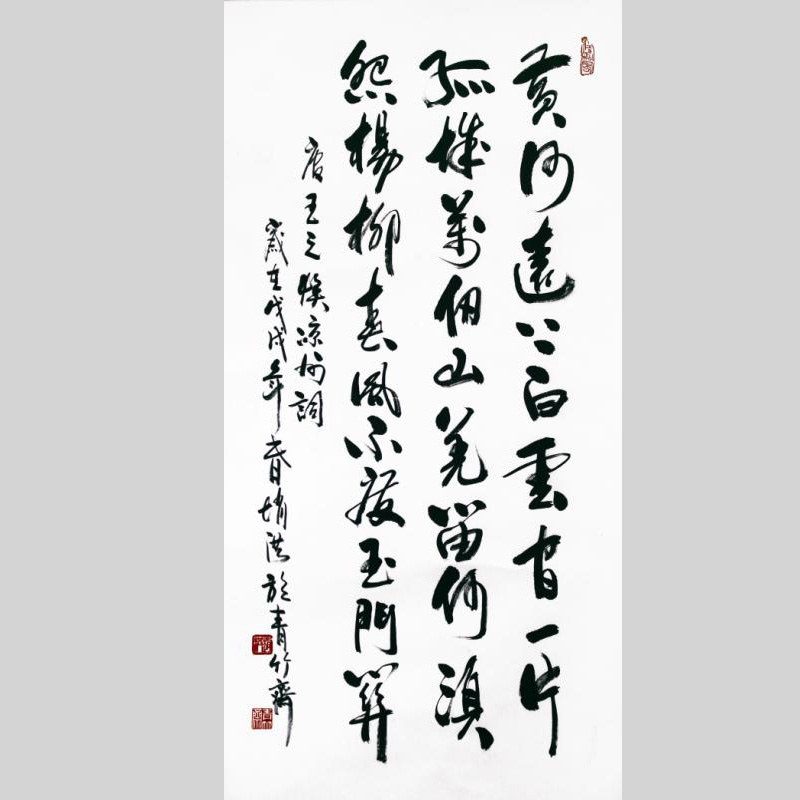 黄河遠上白雲間一片
孤城萬仞山羌笛何須
怨楊柳春風不度玉門關
唐王之渙凉州詞
歲在戊戌年春 洪於青竹齋